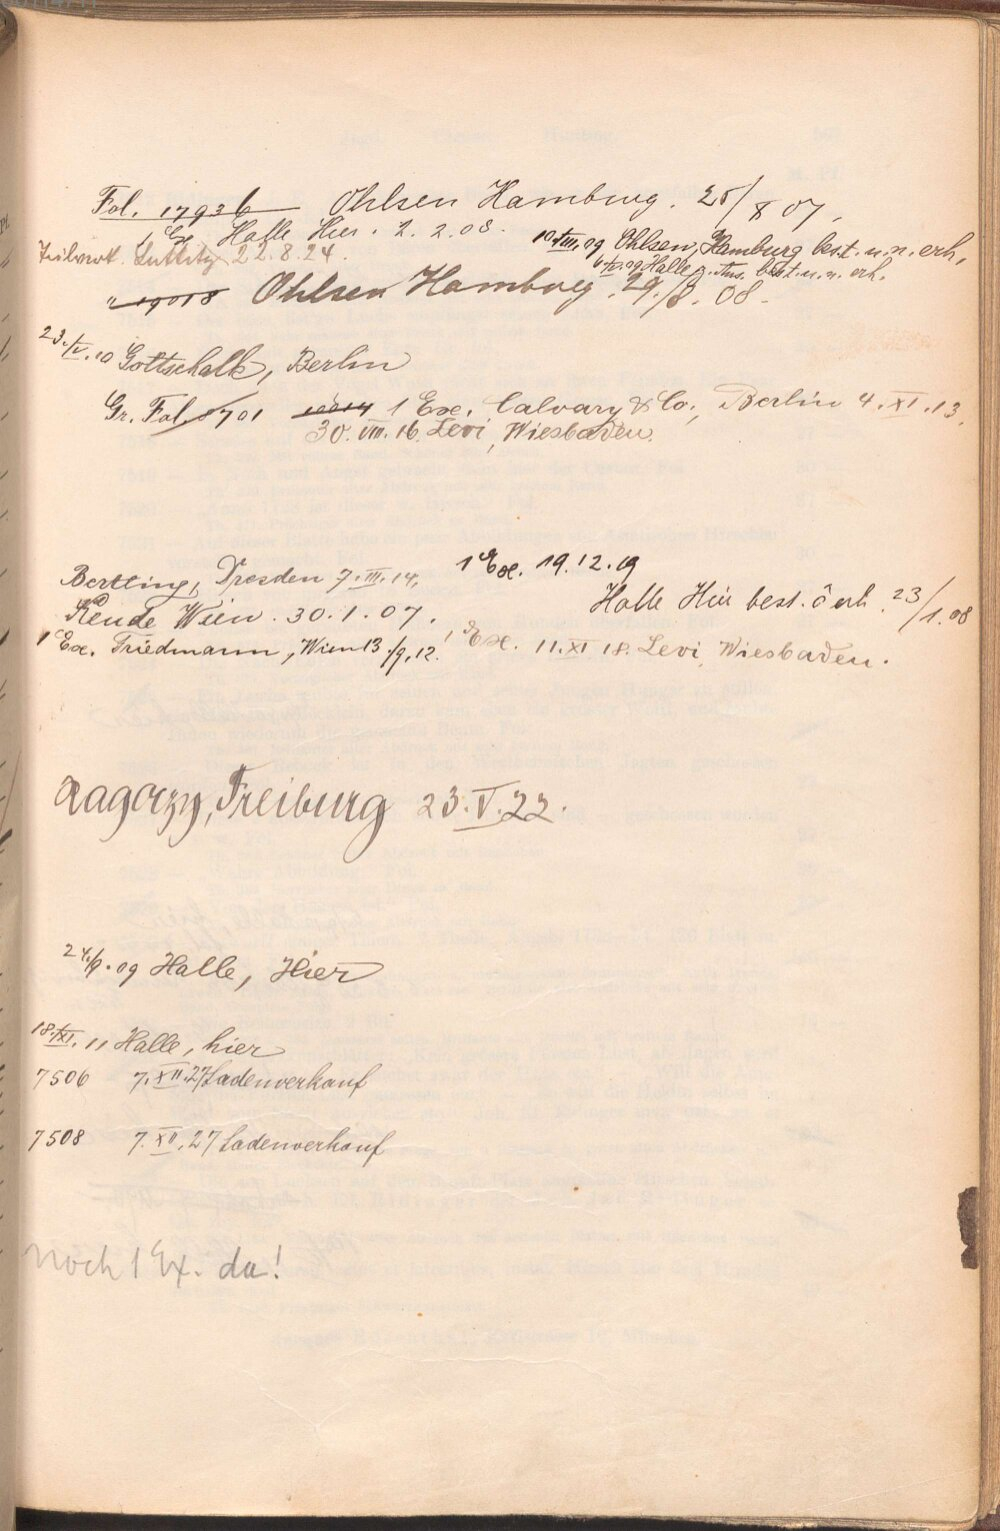 Fol. 17936 Ohlsen Hamburg. 25/X 07.
1 Ex Halle Hier. 2.2.08.
10./VIII.09 Ohlsen, Hamburg best. u. n. erh.
Luttitz 22.8.24.
Halle best. u. n. erh.
" 19018 Ohlsen Hamburg. 29./8. 08.
23./V.10 Gottschalk, Berlin
Gr. Fol. 8701 10014 1 Ex. Calvary & Co., Berlin 4.XI.13.
30. VIII. 16. Levi, Wiesbaden.
1 Ex. 19.12.19
Bertling, Dresden 7.III.14.
Halle Hier best. erh. 23/1.08
Rende Wien. 30.1.07.
1 Ex. Friedmann, Wien 13./9.12.
1 Ex. 11.XI 18. Levi, Wiesbaden.
Ragoczy, Freiburg 23.V.22.
24./9.09 Halle, Hier
18./XI.11 Halle, hier
7506 7.XII.27 Ladenverkauf
7508 7.XII.27 Ladenverkauf
noch 1 Ex. da!